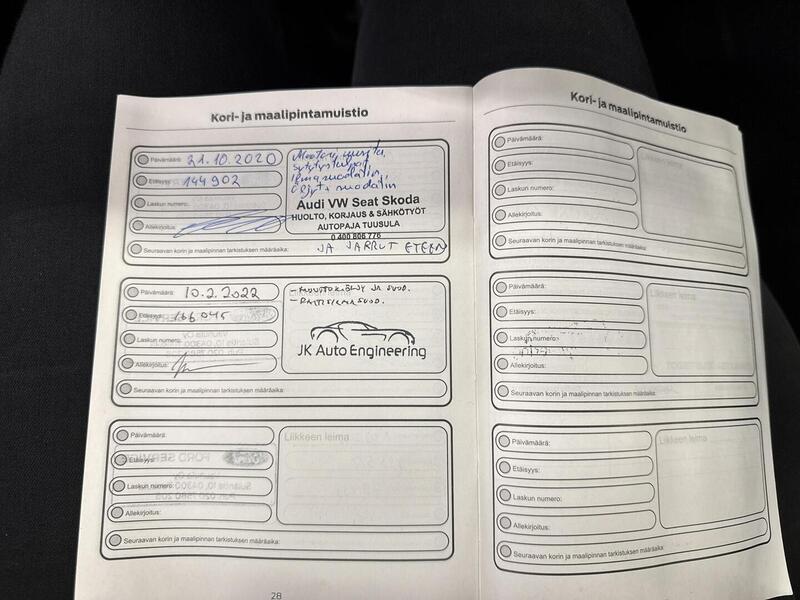 Kori- ja maalipintamuistio
Päivämäärä: 21.10.2020
Etäisyys: 144902
Laskun numero:
Allekirjoitus:
Moottori
ilmansuodatin
Audi VW Seat Skoda
HUOLTO, KORJAUS & SÄHKÖTYÖT
AUTOPAJA TUUSULA
0 400 806 776
JA JARRUT ETEEN
Seuraavan korin ja maalipinnan tarkistuksen määräaika:
Päivämäärä: 10.2.2022
Etäisyys: 166045
Laskun numero:
Allekirjoitus:
JA SUOD.
JK Auto Engineering
Seuraavan korin ja maalipinnan tarkistuksen määräaika:
Päivämäärä:
Etäisyys:
Laskun numero:
Allekirjoitus:
Liikkeen leima
FORD SERVICE
Seuraavan korin ja maalipinnan tarkistuksen määräaika:
28
Kori- ja maalipintamuistio
Päivämäärä:
Etäisyys:
Laskun numero:
Allekirjoitus:
Liikkeen leima
Seuraavan korin ja maalipinnan tarkistuksen määräaika:
Päivämäärä:
Etäisyys:
Laskun numero:
Allekirjoitus:
Liikkeen leima
Seuraavan korin ja maalipinnan tarkistuksen määräaika:
Päivämäärä:
Etäisyys:
Laskun numero:
Allekirjoitus:
Liikkeen leima
Seuraavan korin ja maalipinnan tarkistuksen määräaika: